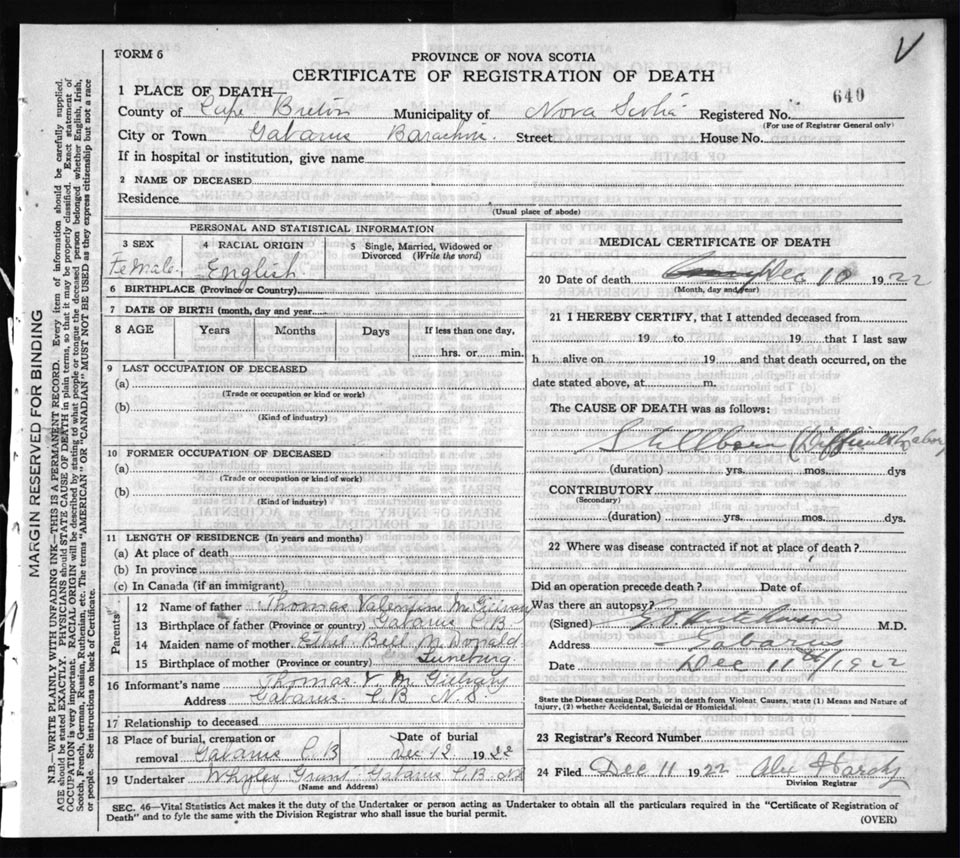 FORM 6
PROVINCE OF NOVA SCOTIA
CERTIFICATE OF REGISTRATION OF DEATH
1 PLACE OF DEATH—
640
County of Cape Breton Municipality of Nova Scotia Registered No.
(For use of Registrar General only)
City or Town Gabarus Barachois Street House No.
If in hospital or institution, give name
2 NAME OF DECEASED
Residence
(Usual place of abode)
PERSONAL AND STATISTICAL INFORMATION
3 SEX 4 RACIAL ORIGIN 5 Single, Married, Widowed or Divorced (Write the word)
Female English
6 BIRTHPLACE (Province or Country)
7 DATE OF BIRTH (month, day and year)
8 AGE Years Months Days If less than one day,
hrs. or min.
9 LAST OCCUPATION OF DECEASED
(a)
(Trade or occupation or kind or work)
(b)
(Kind of industry)
10 FORMER OCCUPATION OF DECEASED
(a)
(Trade or occupation or kind of work)
(b)
(Kind of industry)
11 LENGTH OF RESIDENCE (In years and months)
(a) At place of death
(b) In province
(c) In Canada (if an immigrant)
Parents
12 Name of father Thomas Valentine McGillvary
13 Birthplace of father (Province or country) Gabarus C B
14 Maiden name of mother Ethel Bell McDonald
15 Birthplace of mother (Province or country) Lunenburg
16 Informant's name Thomas V McGillvary
Address Gabarus C.B N.S
17 Relationship to deceased
18 Place of burial, cremation or removal Gabarus C B Date of burial Dec 12 1922
19 Undertaker Grant Gabarus C.B. N.S
(Name and Address)
MEDICAL CERTIFICATE OF DEATH
20 Date of death Dec 10 1922
(Month, day and year)
21 I HEREBY CERTIFY, that I attended deceased from
19 to 19 that I last saw
h alive on 19 and that death occurred, on the
date stated above, at m.
The CAUSE OF DEATH was as follows:
Stillborn (Difficult Labor)
(duration) yrs. mos. dys
CONTRIBUTORY
(Secondary)
(duration) yrs. mos. dys.
22 Where was disease contracted if not at place of death?
Did an operation precede death? Date of
Was there an autopsy?
(Signed) Hutchinson M.D.
Address Gabarus
Date Dec 11th/1922
State the Disease causing Death, or in death from Violent Causes, state (1) Means and Nature of
Injury, (2) whether Accidental, Suicidal or Homicidal.
23 Registrar's Record Number
24 Filed Dec 11 1922 Alex Hardy
Division Registrar
SEC. 46—Vital Statistics Act makes it the duty of the Undertaker or person acting as Undertaker to obtain all the particulars required in the "Certificate of Registration of
Death" and to fyle the same with the Division Registrar who shall issue the burial permit.
(OVER)
MARGIN RESERVED FOR BINDING
N.B.—WRITE PLAINLY WITH UNFADING INK—THIS IS A PERMANENT RECORD. Every item of information should be carefully supplied.
AGE should be stated EXACTLY. PHYSICIANS should STATE CAUSE OF DEATH in plain terms, so that it may be properly classified. Exact statement of
OCCUPATION is very important. RACIAL ORIGIN will be described by stating to what people or tongue the deceased person belonged whether English, Irish,
Scotch, French, German, Russian, Ruthenian, etc. The terms "AMERICAN" OR "CANADIAN" MUST NOT BE USED as they express citizenship but not a race
or people. See instructions on back of Certificate.